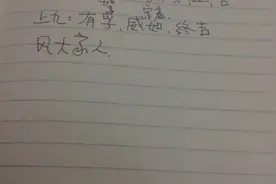 上九：有孚，威如，终吉
风火家人